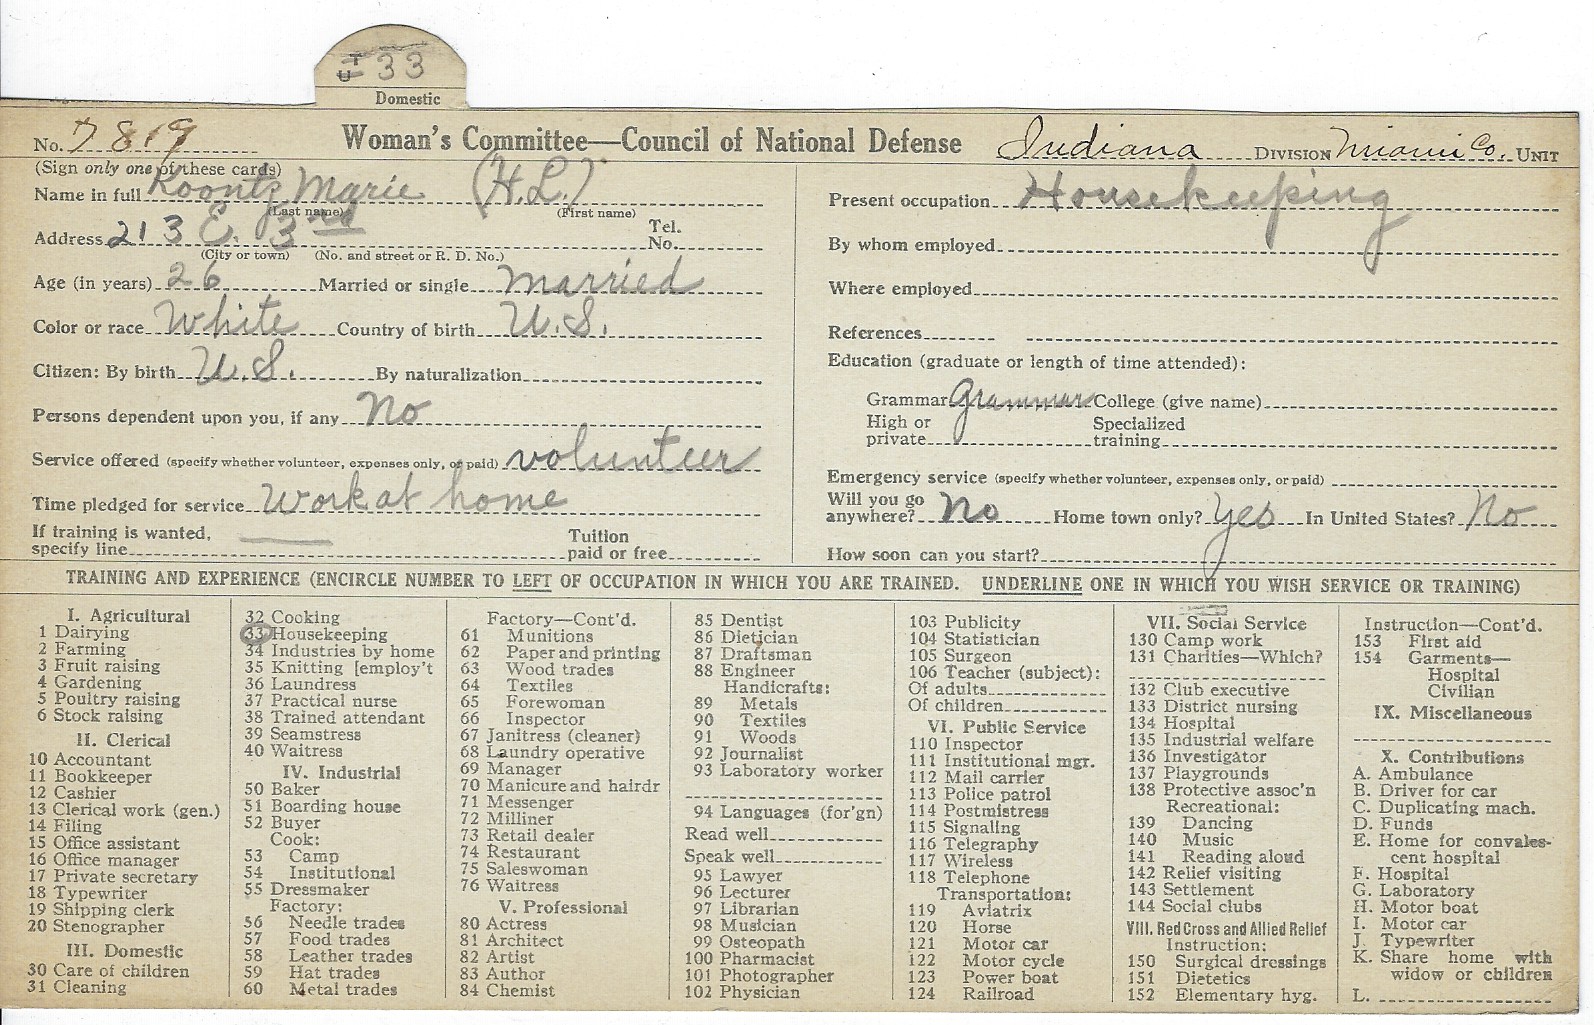 33
Domestic
No. 7819 Woman's Committee—Council of National Defense Indiana DIVISION Miami Co. UNIT
(Sign only one of these cards)
Name in full Koontz Marie (H.L.)
(Last name) (First name)
Address 213 E. 3rd Tel. No.
(City or town) (No. and street or R. D. No.)
Age (in years) 26 Married or single married
Color or race White Country of birth U.S.
Citizen: By birth U.S. By naturalization
Persons dependent upon you, if any No
Service offered (specify whether volunteer, expenses only, or paid) volunteer
Time pledged for service Work at home
If training is wanted, specify line Tuition paid or free
Present occupation Housekeeping
By whom employed
Where employed
References
Education (graduate or length of time attended):
Grammar Grammar College (give name)
High or private Specialized training
Emergency service (specify whether volunteer, expenses only, or paid)
Will you go anywhere? No Home town only? Yes In United States? No
How soon can you start?
TRAINING AND EXPERIENCE (ENCIRCLE NUMBER TO LEFT OF OCCUPATION IN WHICH YOU ARE TRAINED. UNDERLINE ONE IN WHICH YOU WISH SERVICE OR TRAINING)
I. Agricultural
1 Dairying
2 Farming
3 Fruit raising
4 Gardening
5 Poultry raising
6 Stock raising
II. Clerical
10 Accountant
11 Bookkeeper
12 Cashier
13 Clerical work (gen.)
14 Filing
15 Office assistant
16 Office manager
17 Private secretary
18 Typewriter
19 Shipping clerk
20 Stenographer
III. Domestic
30 Care of children
31 Cleaning
32 Cooking
33 Housekeeping
34 Industries by home
35 Knitting [employ't
36 Laundress
37 Practical nurse
38 Trained attendant
39 Seamstress
40 Waitress
IV. Industrial
50 Baker
51 Boarding house
52 Buyer
Cook:
53 Camp
54 Institutional
55 Dressmaker
Factory:
56 Needle trades
57 Food trades
58 Leather trades
59 Hat trades
60 Metal trades
Factory—Cont'd.
61 Munitions
62 Paper and printing
63 Wood trades
64 Textiles
65 Forewoman
66 Inspector
67 Janitress (cleaner)
68 Laundry operative
69 Manager
70 Manicure and hairdr
71 Messenger
72 Milliner
73 Retail dealer
74 Restaurant
75 Saleswoman
76 Waitress
V. Professional
80 Actress
81 Architect
82 Artist
83 Author
84 Chemist
85 Dentist
86 Dietician
87 Draftsman
88 Engineer
Handicrafts:
89 Metals
90 Textiles
91 Woods
92 Journalist
93 Laboratory worker
94 Languages (for'gn)
Read well
Speak well
95 Lawyer
96 Lecturer
97 Librarian
98 Musician
99 Osteopath
100 Pharmacist
101 Photographer
102 Physician
103 Publicity
104 Statistician
105 Surgeon
106 Teacher (subject):
Of adults
Of children
VI. Public Service
110 Inspector
111 Institutional mgr.
112 Mail carrier
113 Police patrol
114 Postmistress
115 Signaling
116 Telegraphy
117 Wireless
118 Telephone
Transportation:
119 Aviatrix
120 Horse
121 Motor car
122 Motor cycle
123 Power boat
124 Railroad
VII. Social Service
130 Camp work
131 Charities—Which?
132 Club executive
133 District nursing
134 Hospital
135 Industrial welfare
136 Investigator
137 Playgrounds
138 Protective assoc'n
Recreational:
139 Dancing
140 Music
141 Reading aloud
142 Relief visiting
143 Settlement
144 Social clubs
VIII. Red Cross and Allied Relief
Instruction:
150 Surgical dressings
151 Dietetics
152 Elementary hyg.
Instruction—Cont'd.
153 First aid
154 Garments—
Hospital
Civilian
IX. Miscellaneous
X. Contributions
A. Ambulance
B. Driver for car
C. Duplicating mach.
D. Funds
E. Home for convales-
cent hospital
F. Hospital
G. Laboratory
H. Motor boat
I. Motor car
J. Typewriter
K. Share home with
widow or children
L.